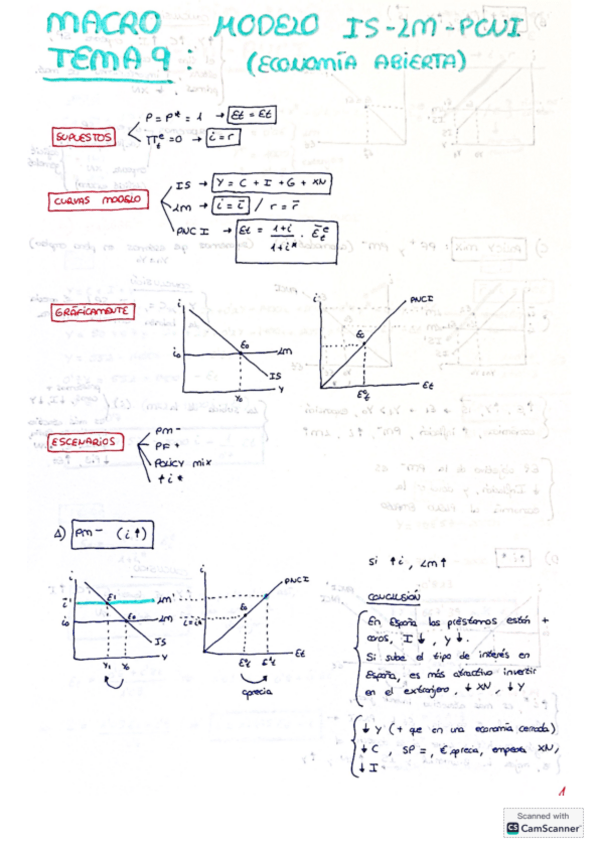 MACRO MODELO IS-LM-PCNI
TEMA 9: (ECONOMÍA ABIERTA)
SUPUESTOS
P = P* = 1 → Et = Et
Πᵉt = 0 → i = r
CURVAS MODELO
IS → Y = C + I + G + XN
LM → i = i̅ / r = r̅
PNCI → Et = 1+i / 1+i* · E̅ᵉt
GRÁFICAMENTE
i
i0
E0
LM
IS
Y0
Y
i
PNCI
E0
E⁰t
Et
ESCENARIOS
PM -
PF +
POLICY MIX
↑ i*
A) PM - (i↑)
i
i'
i0
E1
LM'
E0
LM
IS
Y1 Y0
Y
i
PNCI
E0
Et
aprecia
Si ↑i, LM↑
CONCLUSIÓN
En España los préstamos están +
caros, I↓, Y↓.
Si sube el tipo de interés en
España, es más atractivo invertir
en el extranjero, ↓ XN, ↓ Y
↓ Y (+ que en una economía cerrada)
↓ C, SP =, € aprecia, empeora XN,
↓ I
1
Scanned with
CS CamScanner